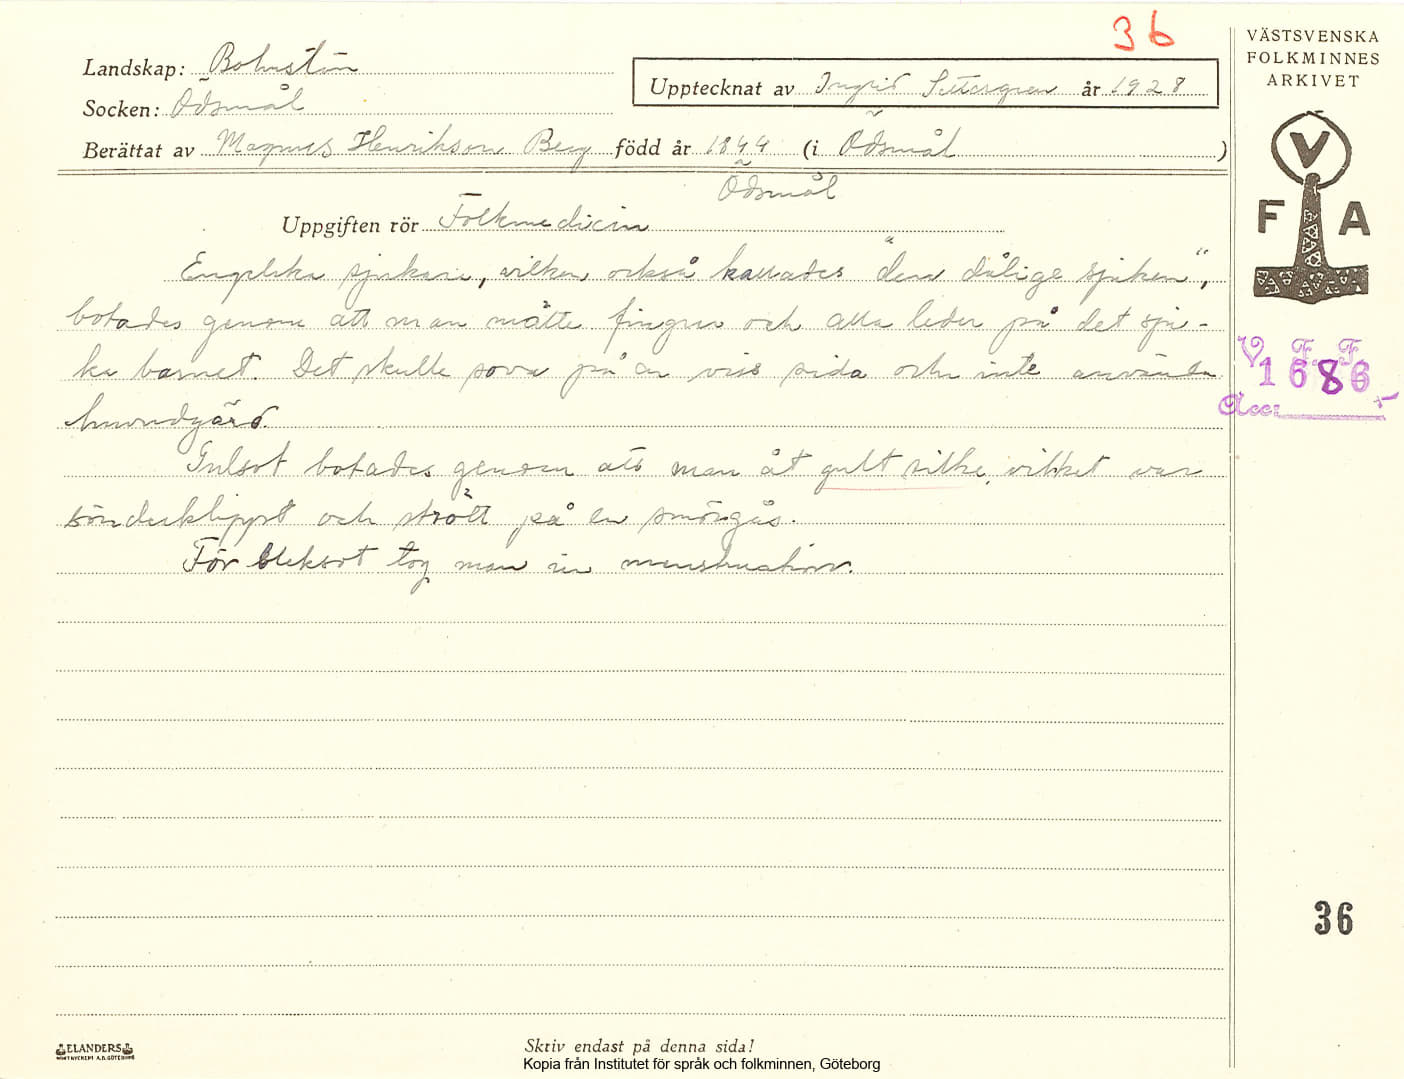 36
VÄSTSVENSKA
FOLKMINNES
ARKIVET
Landskap: Bohuslän
Upptecknat av Ingrid Settergren år 1928
Socken: Ödsmål
Berättat av Magnus Henrikson Berg född år 1844 (i Ödsmål)
Ödsmål
V
F A
Uppgiften rör Folkmedicin
Engelska sjukan, vilken också kallades "den dålige sjuken",
botades genom att man mätte fingrar och alla leder på det sju-
ka barnet. Det skulle sova på en viss sida och inte använda
huvudgärd.
V. F. F.
1686
Acc:
Gulsot botades genom att man åt gult silke, vilket var
sönderklippt och strött på en smörgås.
För bleksot tog man in menstruation.
36
ELANDERS
Skriv endast på denna sida!
Kopia från Institutet för språk och folkminnen, Göteborg